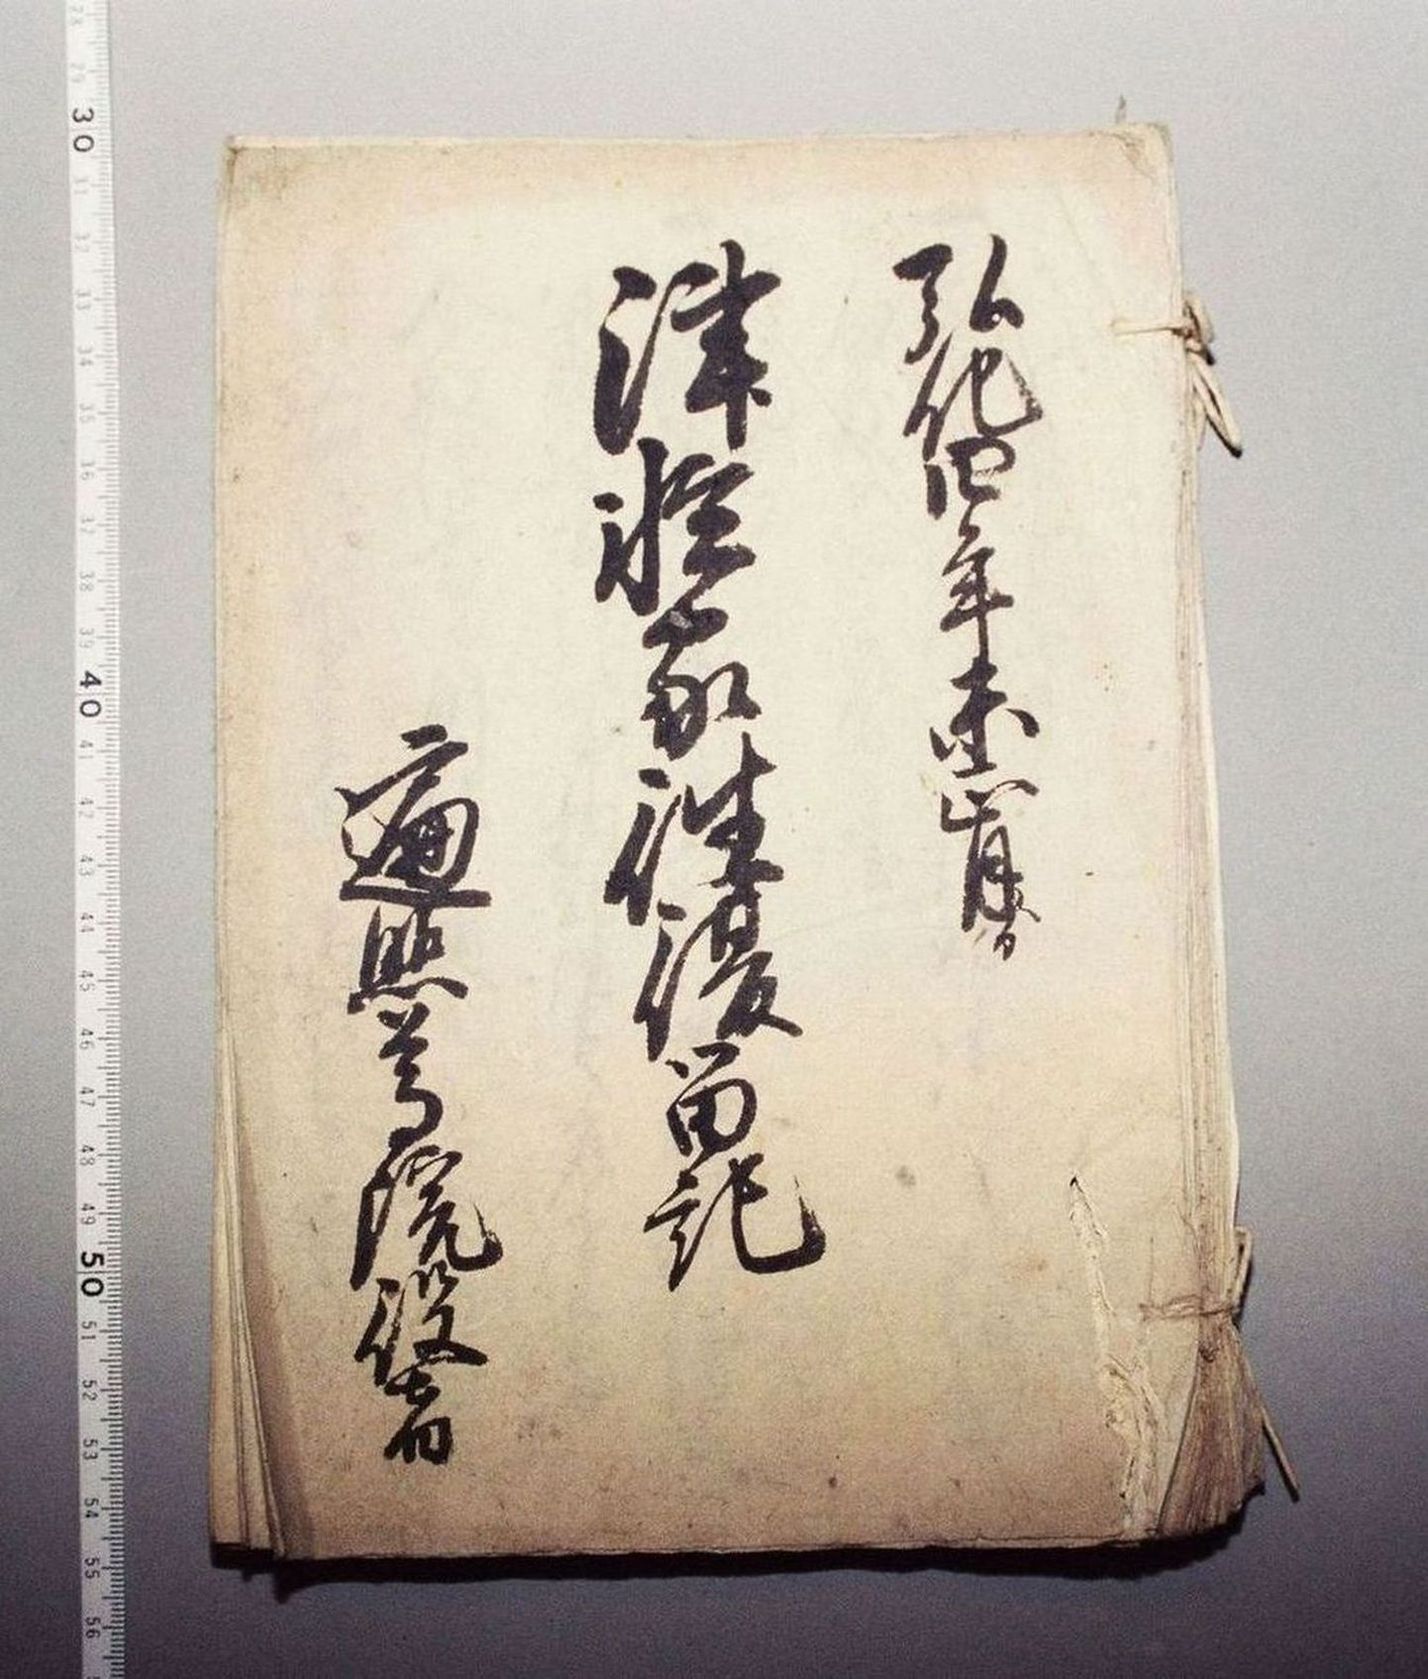 弘化四年未正月
津軽家往復留記
遍照尊院役者
30 31 32 33 34 35 36 37 38 39 40 41 42 43 44 45 46 47 48 49 50 51 52 53 54 55 56